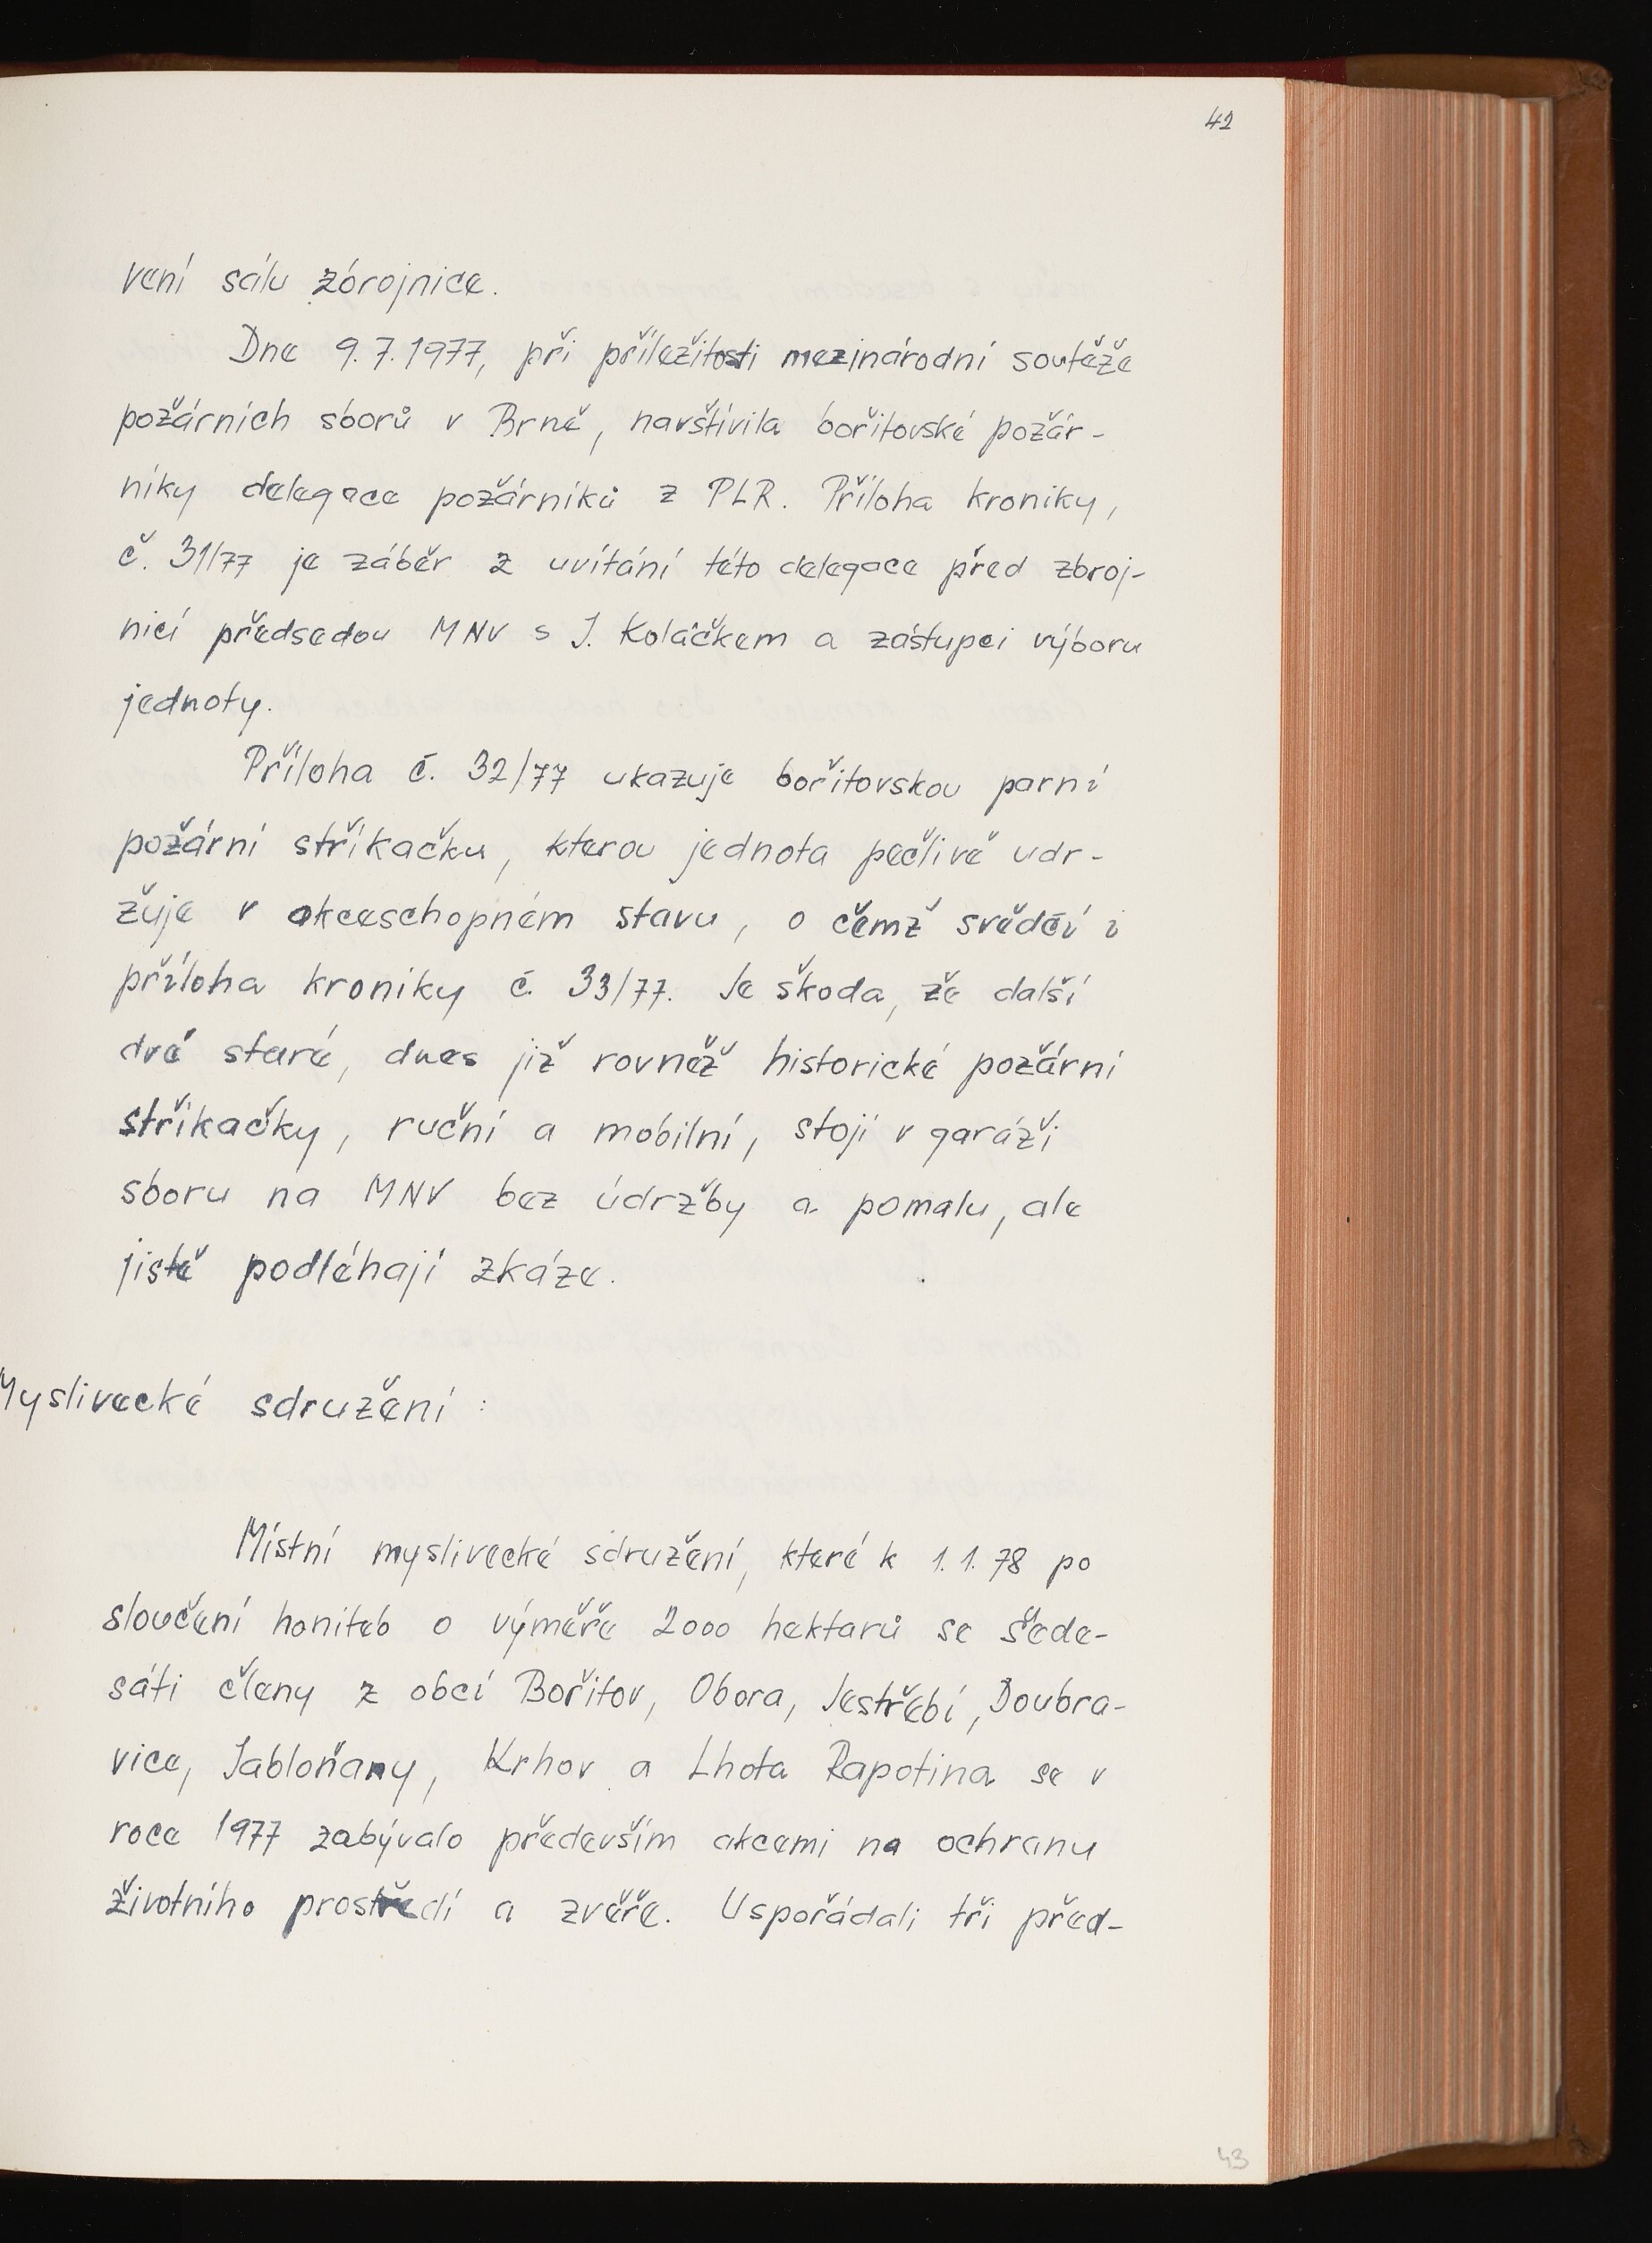 42
vení sálu zbrojnice.
Dne 9.7.1977, při příležitosti mezinárodní soutěže
požárních sborů v Brně, navštívila bořitovské požár-
níky delegace požárníků z PLR. Příloha kroniky,
č. 31/77 je záběr z uvítání této delegace před zbroj-
nicí předsedou MNV s J. Koláčkem a zástupci výboru
jednoty.
Příloha č. 32/77 ukazuje bořitovskou parní
požární stříkačku, kterou jednota pečlivě udr-
žuje v akceschopném stavu, o čemž svědčí i
příloha kroniky č. 33/77. Je škoda, že další
dvě staré, dnes již rovněž historické požární
stříkačky, ruční a mobilní, stojí v garáži
sboru na MNV bez údržby a pomalu, ale
jistě podléhají zkáze.
Myslivecké sdružení :
Místní myslivecké sdružení, které k 1.1.78 po
sloučení honiteb o výměře 2000 hektarů se šede-
sáti členy z obcí Bořitov, Obora, Jestřebí, Doubra-
vice, Jabloňany, Krhov a Lhota Rapotina se v
roce 1977 zabývalo především akcemi na ochranu
životního prostředí a zvěře. Uspořádali tři před-
43